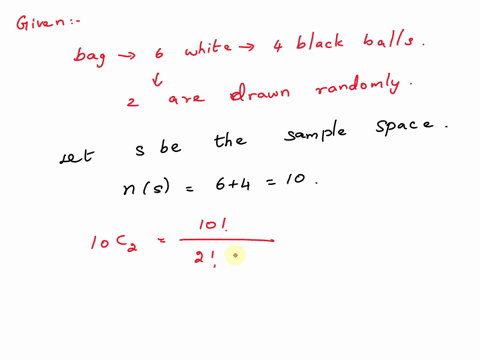 Given:-
bag → 6 white → 4 black balls.
↓
2 are drawn randomly.
Let s be the sample space.
n(s) = 6+4 = 10.
10C₂ = 10! / 2!